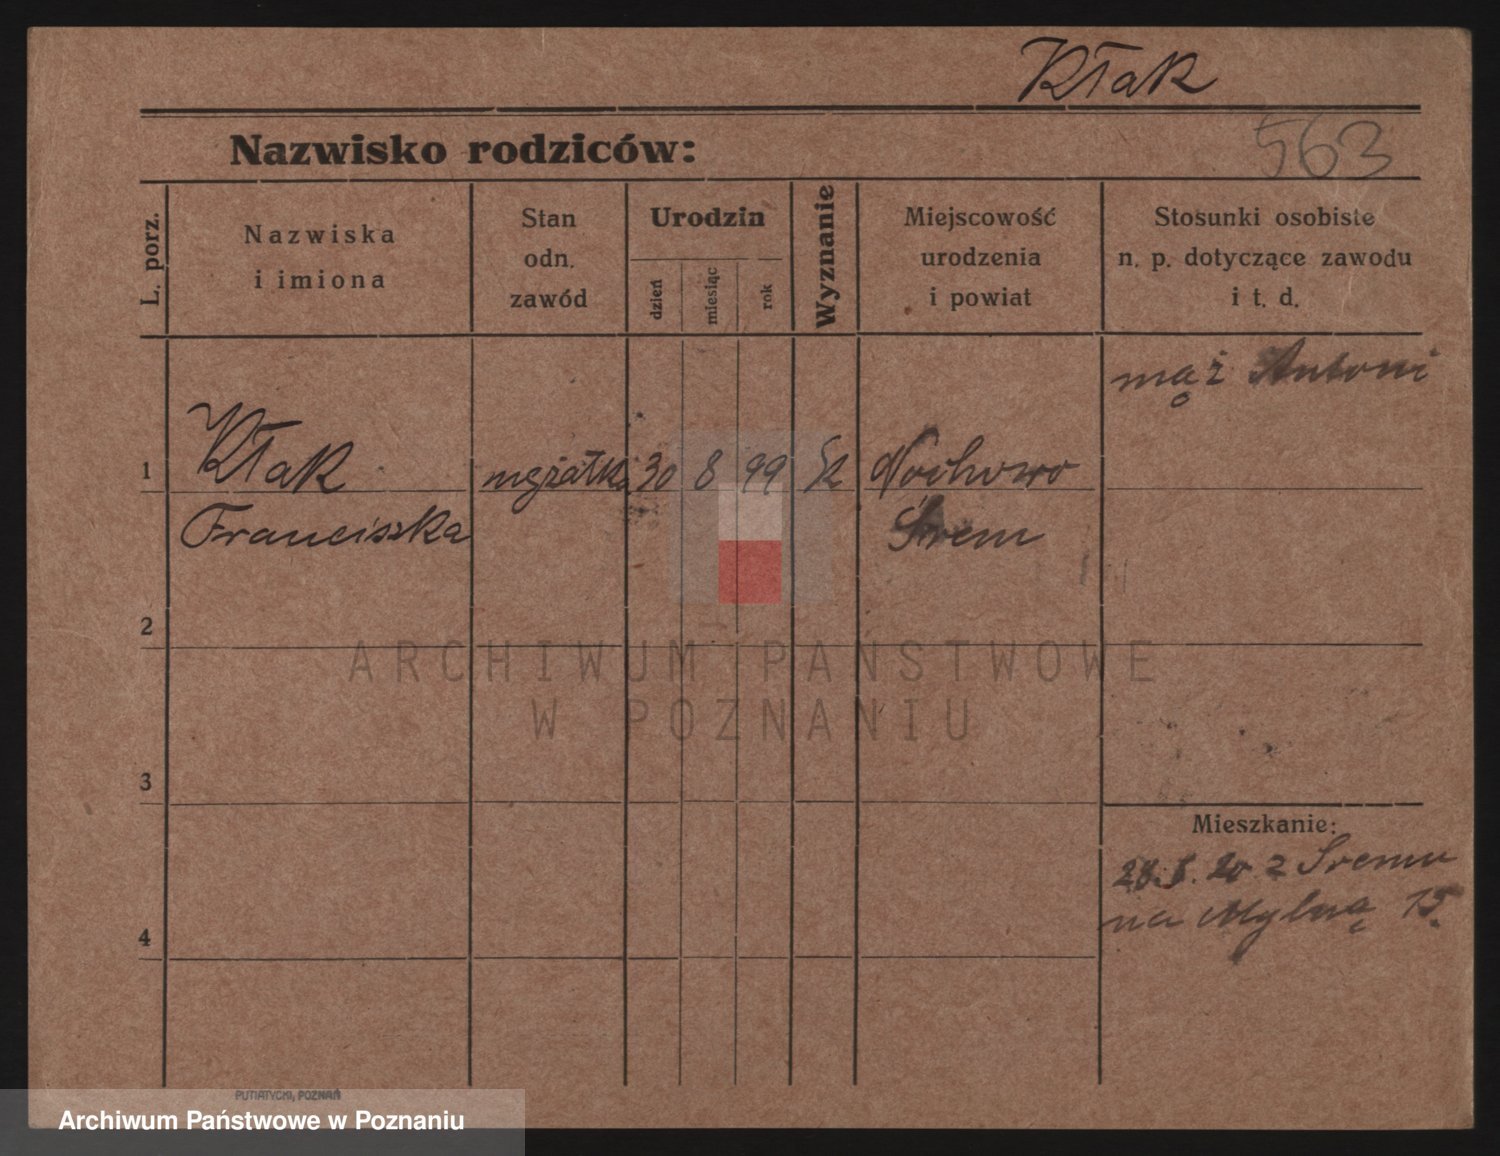 Kłak
Nazwisko rodziców:
563
L. porz.
Nazwiska
i imiona
Stan
odn.
zawód
Urodzin
dzień
miesiąc
rok
Wyznanie
Miejscowość
urodzenia
i powiat
Stosunki osobiste
n. p. dotyczące zawodu
i t. d.
mąż Antoni
1
Kłak
mężatka
30
8
99
K
Nochowo
Franciszka
Śrem
2
ARCHIWUM PAŃSTWOWE
W POZNANIU
3
Mieszkanie:
20 z Śremu
na Mylną 15.
4
PUTIATYCKI, POZNAŃ
Archiwum Państwowe w Poznaniu